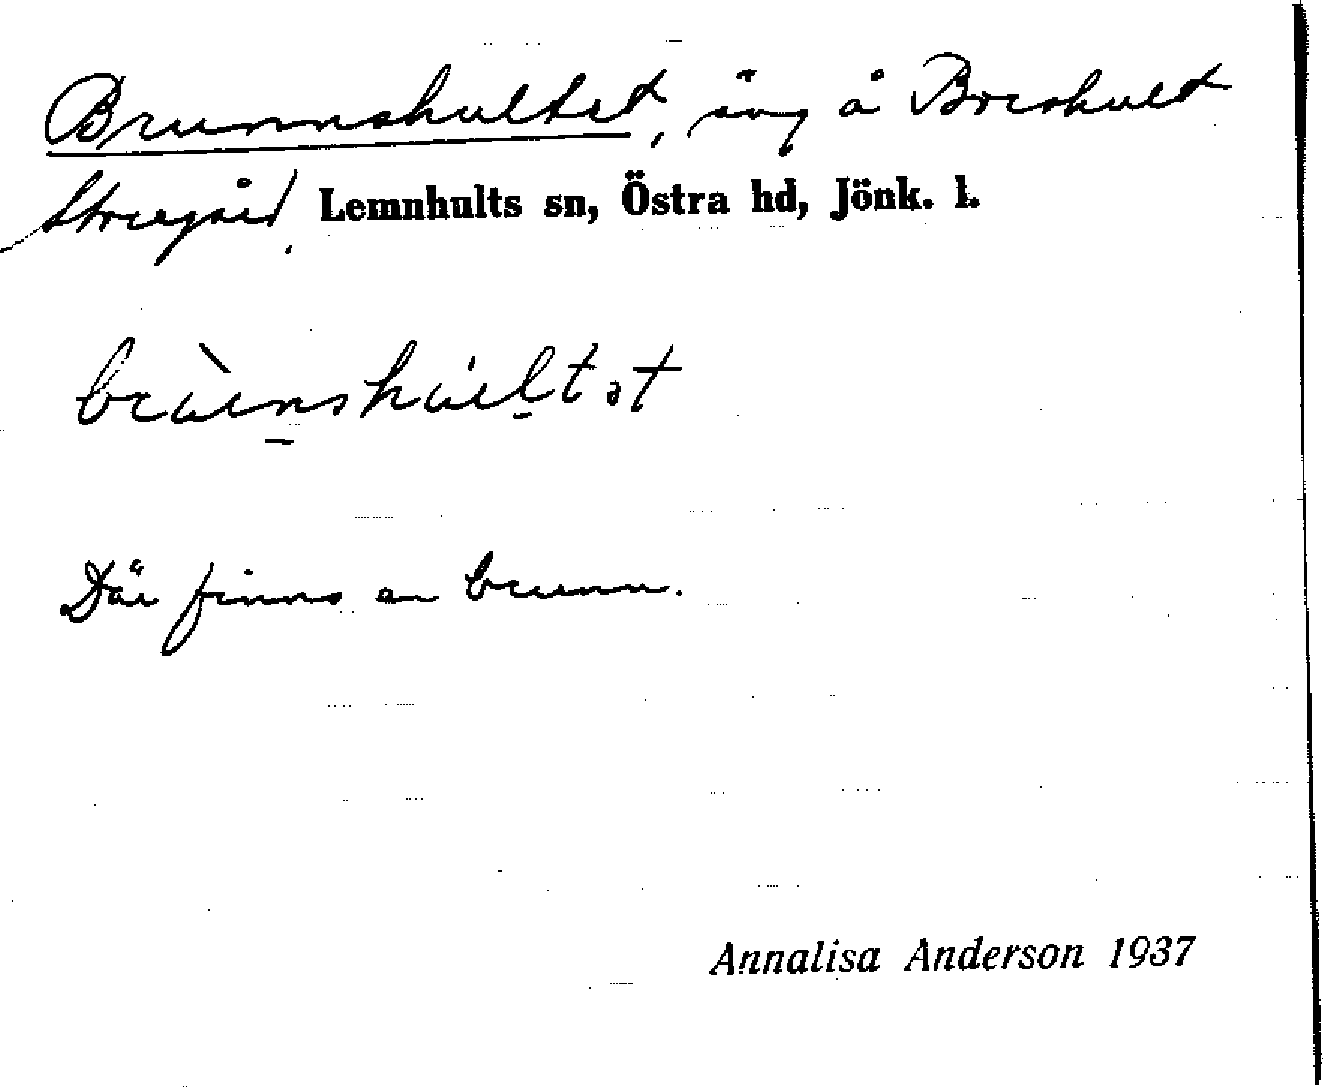 Brunnshultet, äng å Boeshult
Storegård, Lemnhults sn, Östra hd, Jönk. l.
brùnshúltət
Där finns en brunn.
Annalisa Anderson 1937